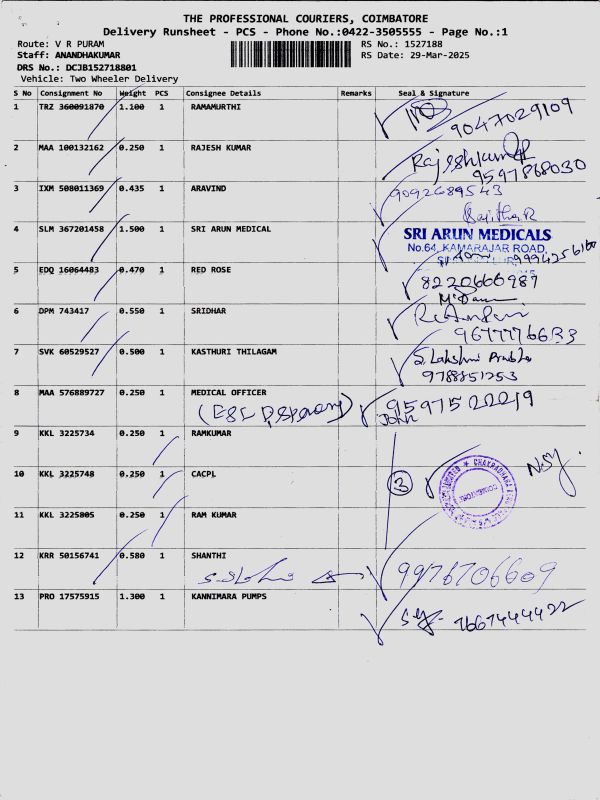 THE PROFESSIONAL COURIERS, COIMBATORE
Delivery Runsheet - PCS - Phone No.:0422-3505555 - Page No.:1
Route: V R PURAM RS No.: 1527188
Staff: ANANDHAKUMAR RS Date: 29-Mar-2025
DRS No.: DCJB152718801
Vehicle: Two Wheeler Delivery
S No Consignment No Weight PCS Consignee Details Remarks Seal & Signature
1 TRZ 360091870 1.100 1 RAMAMURTHI
9047029109
2 MAA 100132162 0.250 1 RAJESH KUMAR
Rajeshkumar
9597868030
3 IXM 508011369 0.435 1 ARAVIND 9092689543
4 SLM 367201458 1.500 1 SRI ARUN MEDICAL SRI ARUN MEDICALS
No.64, KAMARAJAR ROAD,
9994256160
5 EDQ 16064483 0.470 1 RED ROSE
8220666987
6 DPM 743417 0.550 1 SRIDHAR
9677776633
7 SVK 60529527 0.500 1 KASTHURI THILAGAM S. Lakshmi Prabha
9788851253
8 MAA 576889727 0.250 1 MEDICAL OFFICER 9597522219
John
9 KKL 3225734 0.250 1 RAMKUMAR
10 KKL 3225748 0.250 1 CACPL 3
11 KKL 3225805 0.250 1 RAM KUMAR
12 KRR 50156741 0.580 1 SHANTHI 9976706609
13 PRO 17575915 1.300 1 KANNIMARA PUMPS 7667444422